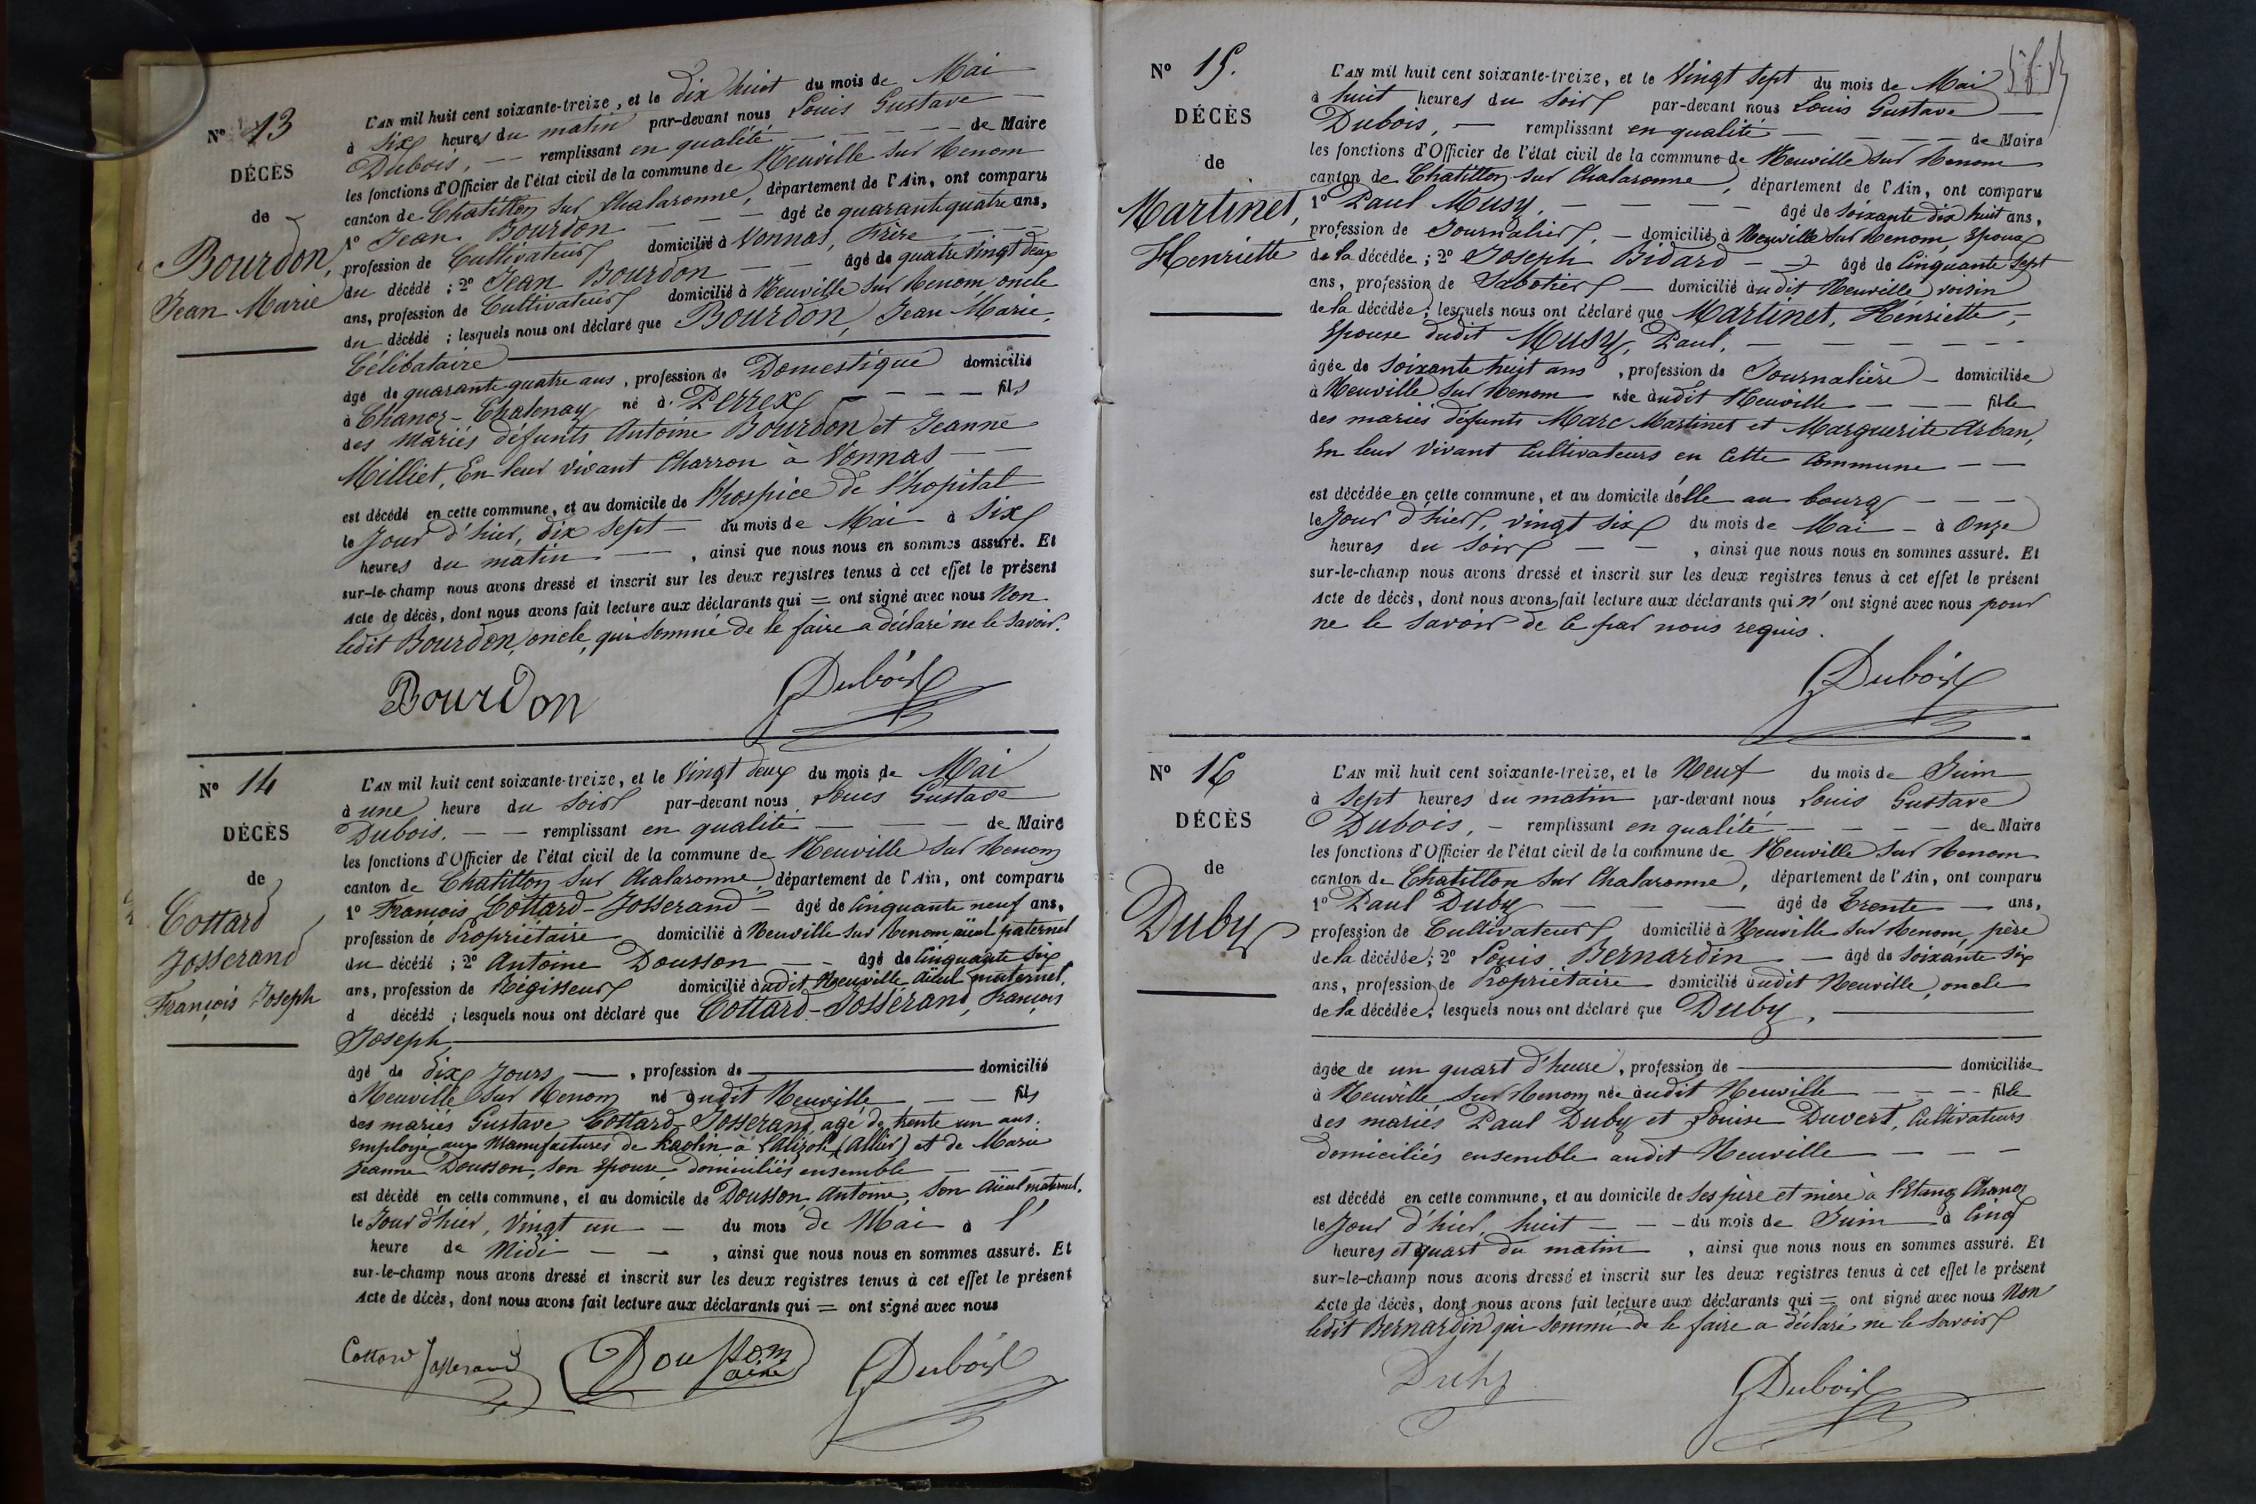 N° 13
DÉCÈS
de
Bourdon,
Jean Marie
L'AN mil huit cent soixante-treize, et le dix huit du mois de Mai
à Six heures du matin par-devant nous Louis Gustave
Dubois, remplissant en qualité de Maire
les fonctions d'Officier de l'état civil de la commune de Neuville sur Renom
canton de Chatillon sur Chalaronne, département de l'Ain, ont comparu
1° Jean Bourdon âgé de quarante quatre ans,
profession de Cultivateur domicilié à Vonnas, frère
du décédé ; 2° Jean Bourdon âgé de quatre vingt deux
ans, profession de Cultivateur domicilié à Neuville sur Renom, oncle
du décédé ; lesquels nous ont déclaré que Bourdon, Jean Marie,
Célibataire
âgé de quarante quatre ans, profession de Domestique domicilié
à Chanoz-Chatenay né à Perrex fils
des mariés défunts Antoine Bourdon et Jeanne
Milliet, En leur vivant Charron à Vonnas
est décédé en cette commune, et au domicile de l'hospice de l'hopital
le Jour d'hier, dix sept du mois de Mai à Six
heures du matin, ainsi que nous nous en sommes assuré. Et
sur-le-champ nous avons dressé et inscrit sur les deux registres tenus à cet effet le présent
Acte de décès, dont nous avons fait lecture aux déclarants qui = ont signé avec nous Non
ledit Bourdon, oncle, qui sommé de le faire a déclaré ne le savoir.
Bourdon Dubois
N° 14
DÉCÈS
de
Cottard
Josserand
François Joseph
L'AN mil huit cent soixante-treize, et le Vingt deux du mois de Mai
à une heure du soir par-devant nous Louis Gustave
Dubois. remplissant en qualité de Maire
les fonctions d'Officier de l'état civil de la commune de Neuville sur Renom
canton de Chatillon sur Chalaronne, département de l'Ain, ont comparu
1° François Cottard-Josserand âgé de Cinquante neuf ans,
profession de Propriétaire domicilié à Neuville sur Renom aïeul paternel
du décédé ; 2° Antoine Dousson âgé de Cinquante six
ans, profession de Régisseur domicilié audit Neuville, Aïeul maternel.
d décédé ; lesquels nous ont déclaré que Cottard-Josserand, François
Joseph
âgé de dix Jours, profession de domicilié
à Neuville sur Renom né audit Neuville fils
des mariés Gustave Cottard-Josserand, agé de trente un ans.
employé aux Manufactures de Kaolin à Lalizole (Allier) et de Marie
Jeanne Dousson, son Epouse, domiciliés ensemble
est décédé en cette commune, et au domicile de Dousson, Antoine, son aïeul maternel.
le Jour d'hier, Vingt un du mois de Mai à l'
heure de Midi, ainsi que nous nous en sommes assuré. Et
sur-le-champ nous avons dressé et inscrit sur les deux registres tenus à cet effet le présent
Acte de décès, dont nous avons fait lecture aux déclarants qui = ont signé avec nous
Cottard Josserand Dousson ainé Dubois
N° 15.
DÉCÈS
de
Martinet,
Henriette
L'AN mil huit cent soixante-treize, et le Vingt sept du mois de Mai
à huit heures du Soir par-devant nous Louis Gustave
Dubois, remplissant en qualité de Maire
les fonctions d'Officier de l'état civil de la commune de Neuville sur Renom
canton de Chatillon sur Chalaronne, département de l'Ain, ont comparu
1° Paul Musy, âgé de soixante dix huit ans,
profession de Journalier, domicilié à Neuville sur Renom, Epoux
de la décédée ; 2° Joseph Bidard âgé de Cinquante sept
ans, profession de Sabotier domicilié audit Neuville, voisin
de la décédée ; lesquels nous ont déclaré que Martinet, Henriette,
Epouse dudit Musy, Paul,
âgée de soixante huit ans, profession de Journalière domiciliée
à Neuville sur Renom née audit Neuville fille
des mariés défunts Marc Martinet et Marguerite Arban,
En leur vivant Cultivateurs en Cette Commune
est décédée en cette commune, et au domicile d'elle au bourg
le Jour d'hier, vingt six du mois de Mai à Onze
heures du Soir, ainsi que nous nous en sommes assuré. Et
sur-le-champ nous avons dressé et inscrit sur les deux registres tenus à cet effet le présent
Acte de décès, dont nous avons fait lecture aux déclarants qui n'ont signé avec nous pour
ne le savoir de ce par nous requis.
Dubois
N° 16
DÉCÈS
de
Duby
L'AN mil huit cent soixante-treize, et le Neuf du mois de Juin
à Sept heures du matin par-devant nous Louis Gustave
Dubois, remplissant en qualité de Maire
les fonctions d'Officier de l'état civil de la commune de Neuville sur Renom
canton de Chatillon sur Chalaronne, département de l'Ain, ont comparu
1° Paul Duby âgé de Trente ans,
profession de Cultivateur domicilié à Neuville sur Renom, père
de la décédée ; 2° Louis Bernardin âgé de soixante six
ans, profession de Propriétaire domicilié audit Neuville, oncle
de la décédée ; lesquels nous ont déclaré que Duby,
âgée de un quart d'heure, profession de domiciliée
à Neuville sur Renom née audit Neuville fille
des mariés Paul Duby et Louise Duvert, Cultivateurs
domiciliés ensemble audit Neuville
est décédé en cette commune, et au domicile de ses père et mère à l'Etang Chanoz
le Jour d'hier, huit du mois de Juin à Cinq
heures et quart du matin, ainsi que nous nous en sommes assuré. Et
sur-le-champ nous avons dressé et inscrit sur les deux registres tenus à cet effet le présent
Acte de décès, dont nous avons fait lecture aux déclarants qui = ont signé avec nous Non
ledit Bernardin qui sommé de le faire a déclaré ne le savoir
Duby Dubois